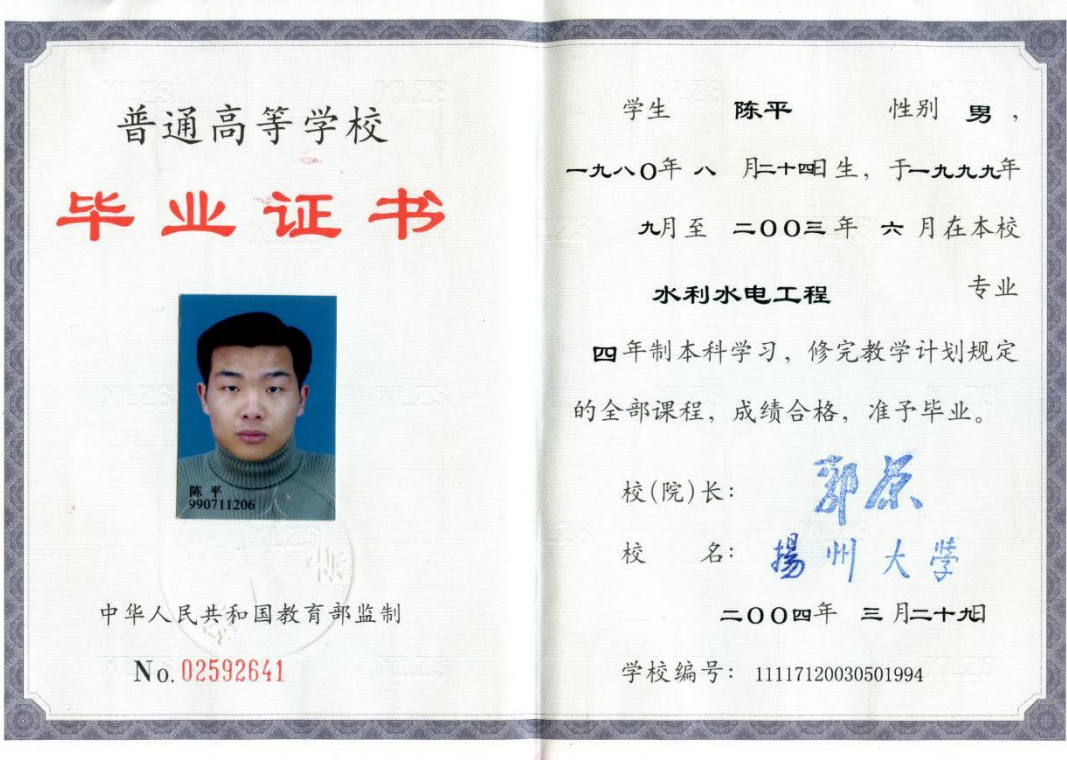 普通高等学校
毕业证书
陈 平
990711206
中华人民共和国教育部监制
No. 02592641
学生 陈平 性别 男，
一九八〇年 八 月二十四日生，于一九九九年
九月至 二〇〇三年 六 月在本校
水利水电工程 专业
四年制本科学习，修完教学计划规定
的全部课程，成绩合格，准予毕业。
校(院)长：
校 名：揚州大学
二〇〇四年 三 月二十九日
学校编号：11117120030501994